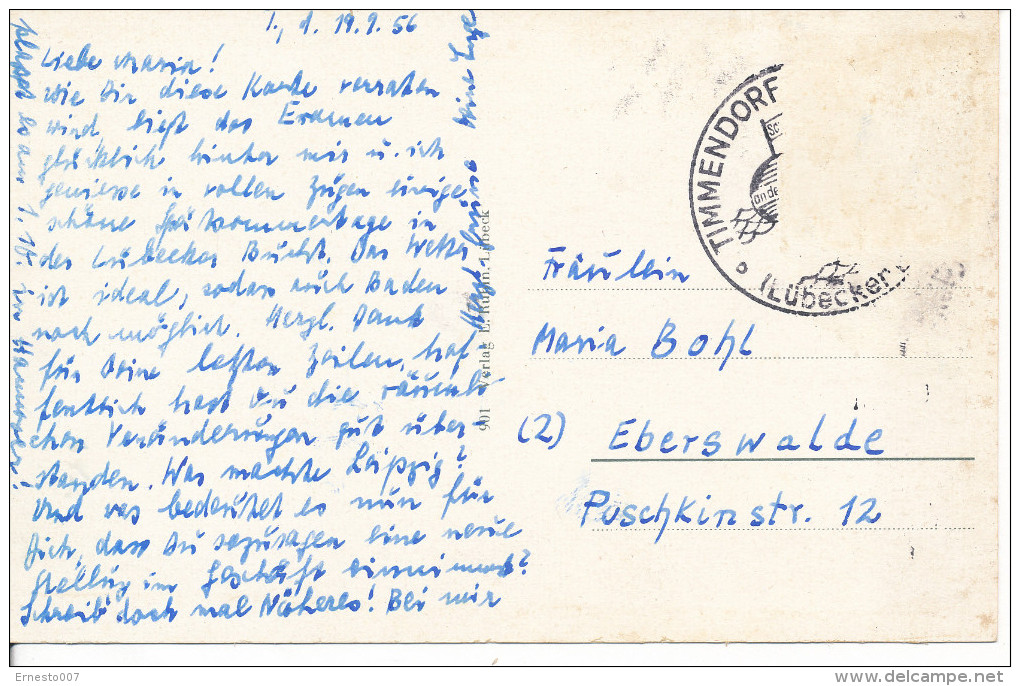 T., d. 19.9.56
Liebe Maria!
Wie Dir diese Karte verraten
wird, liegt das Examen
glücklich hinter mir u. ich
geniesse in vollen Zügen einige
schöne Spätsommertage in
der Lübecker Bucht. Das Wetter
ist ideal, sodass auch Baden
noch möglich. Herzl. Dank
für Deine letzten Zeilen, hof
fentlich hast Du die räumli
chen Veränderungen gut über-
standen. Was machte Leipzig?
Und was bedeutet es nun für
Dich, dass Du sozusagen eine neue
Stellung im Geschäft einnimmst?
Schreib doch mal Näheres! Bei mir
klappt es am 1. 10. in Hannover!
Herzl. Grüsse Deine
901 Verlag L. Rubin, Lübeck
TIMMENDORF
(Lübecker
Fräulein
Maria Bohl
(2) Eberswalde
Puschkinstr. 12
Ernesto007
delcampe.net